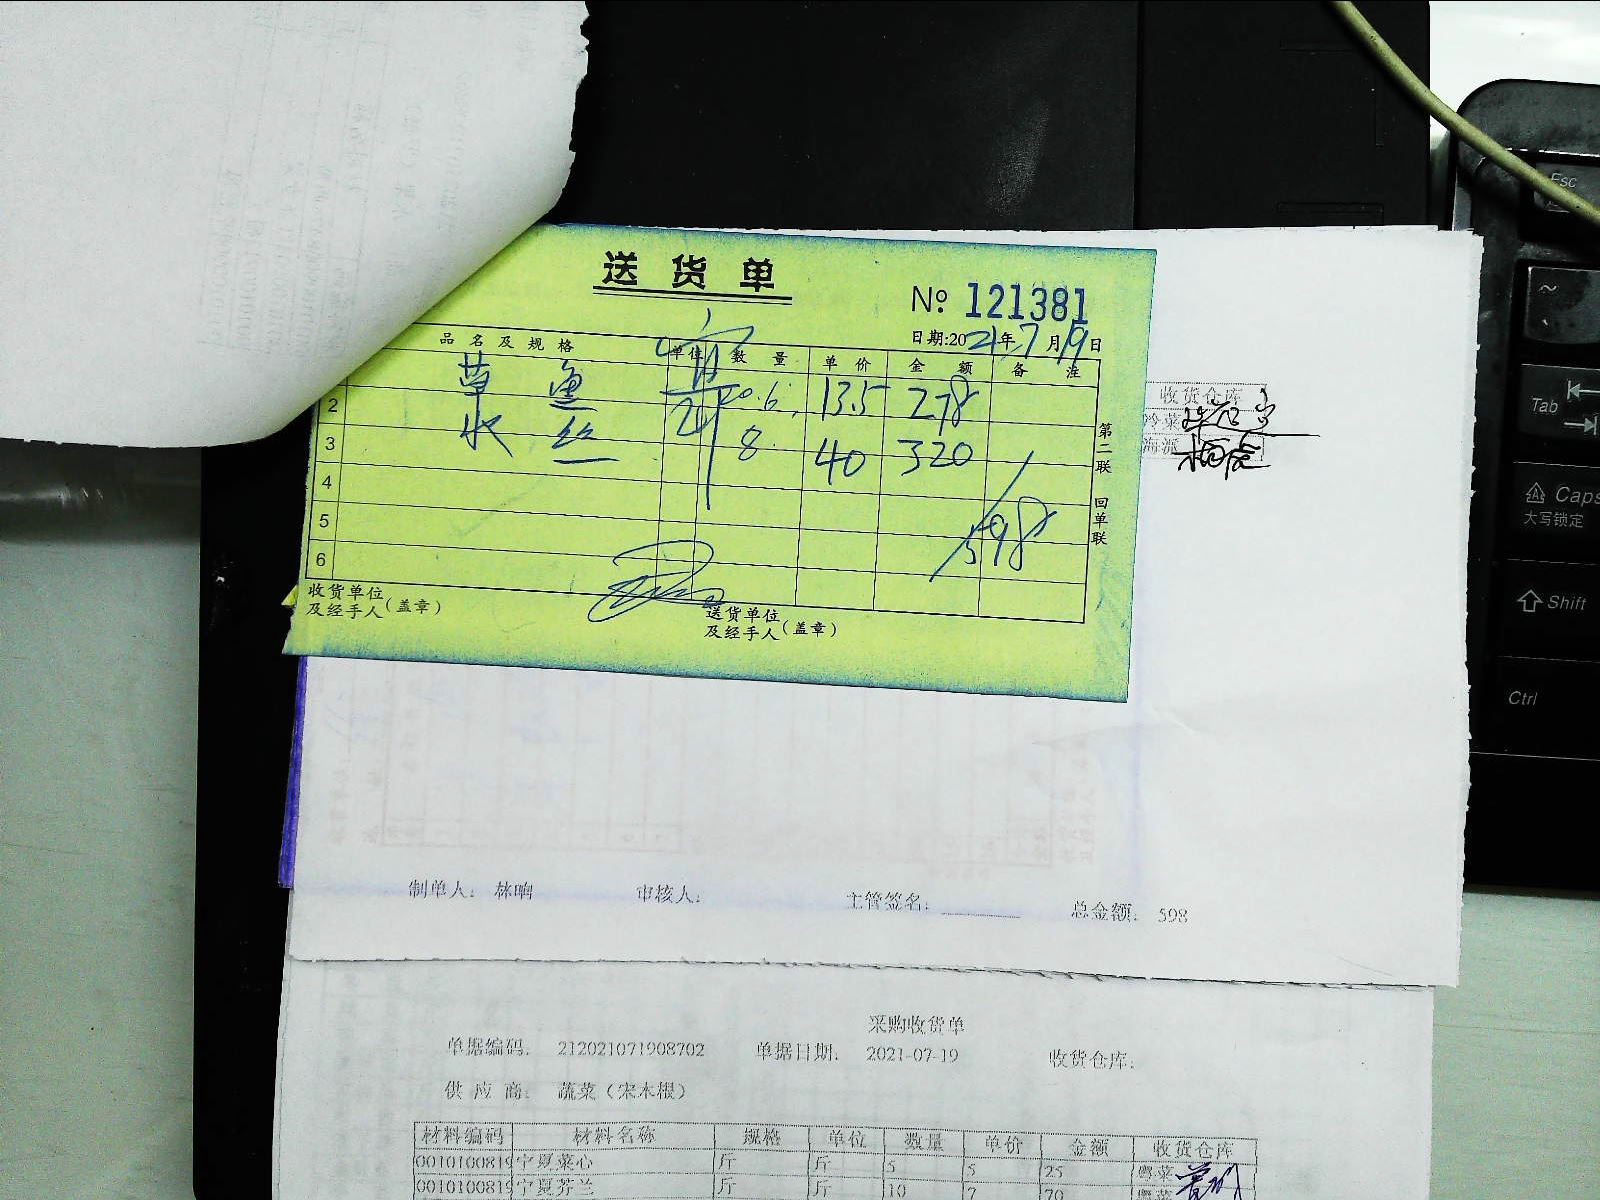 送货单
№ 121381
日期:2021年7月19日
品名及规格 单位 数量 单价 金额 备注
草鱼 20.6 13.5 278
2 8 40 320
3
4
5 598
6
收货单位
及经手人(盖章)
送货单位
及经手人(盖章)
第二联 回单联
收货仓库
制单人: 林响 审核人: 主管签名: 总金额: 598
采购收货单
单据编码: 212021071908702 单据日期: 2021-07-19 收货仓库:
供应商: 蔬菜(宋木根)
材料编码 材料名称 规格 单位 数量 单价 金额 收货仓库
0010100819 宁夏菜心 斤 斤 5 5 25 粤菜
0010100819 宁夏芥兰 斤 斤 10 7 70 粤菜
Esc
~
Tab
Caps
大写锁定
Shift
Ctrl